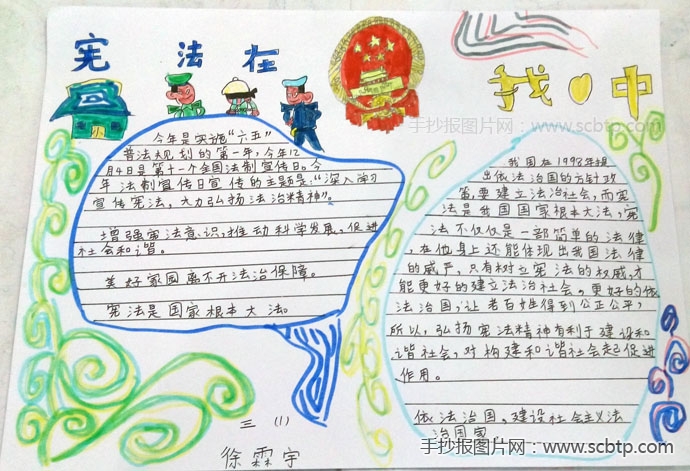 宪法在
我心中
手抄报图片网：
www.scbtp.com
今年是实施“六五”
普法规划的第一年，今年12
月4日是第十一个全国法制宣传日。今
年法制宣传日宣传的主题是：“深入学习
宣传宪法，大力弘扬法治精神”。
增强宪法意识，推动科学发展，促进
社会和谐。
美好家园离不开法治保障。
宪法是国家根本大法。
我国在1998年提
出依法治国的方针政
策，要建立法治社会，而宪
法是我国国家根本大法，宪
法不仅仅是一部简单的法律
，在他身上还能体现出我国法律
的威严，只有树立宪法的权威，才
能更好的建立法治社会。更好的依
法治国，让老百姓得到公正公平，
所以，弘扬宪法精神有利于建设和
谐社会，对构建和谐社会起促进
作用。
依法治国，建设社会主义法
治国家
三（1）
徐霖宇
手抄报图片网：www.scbtp.com